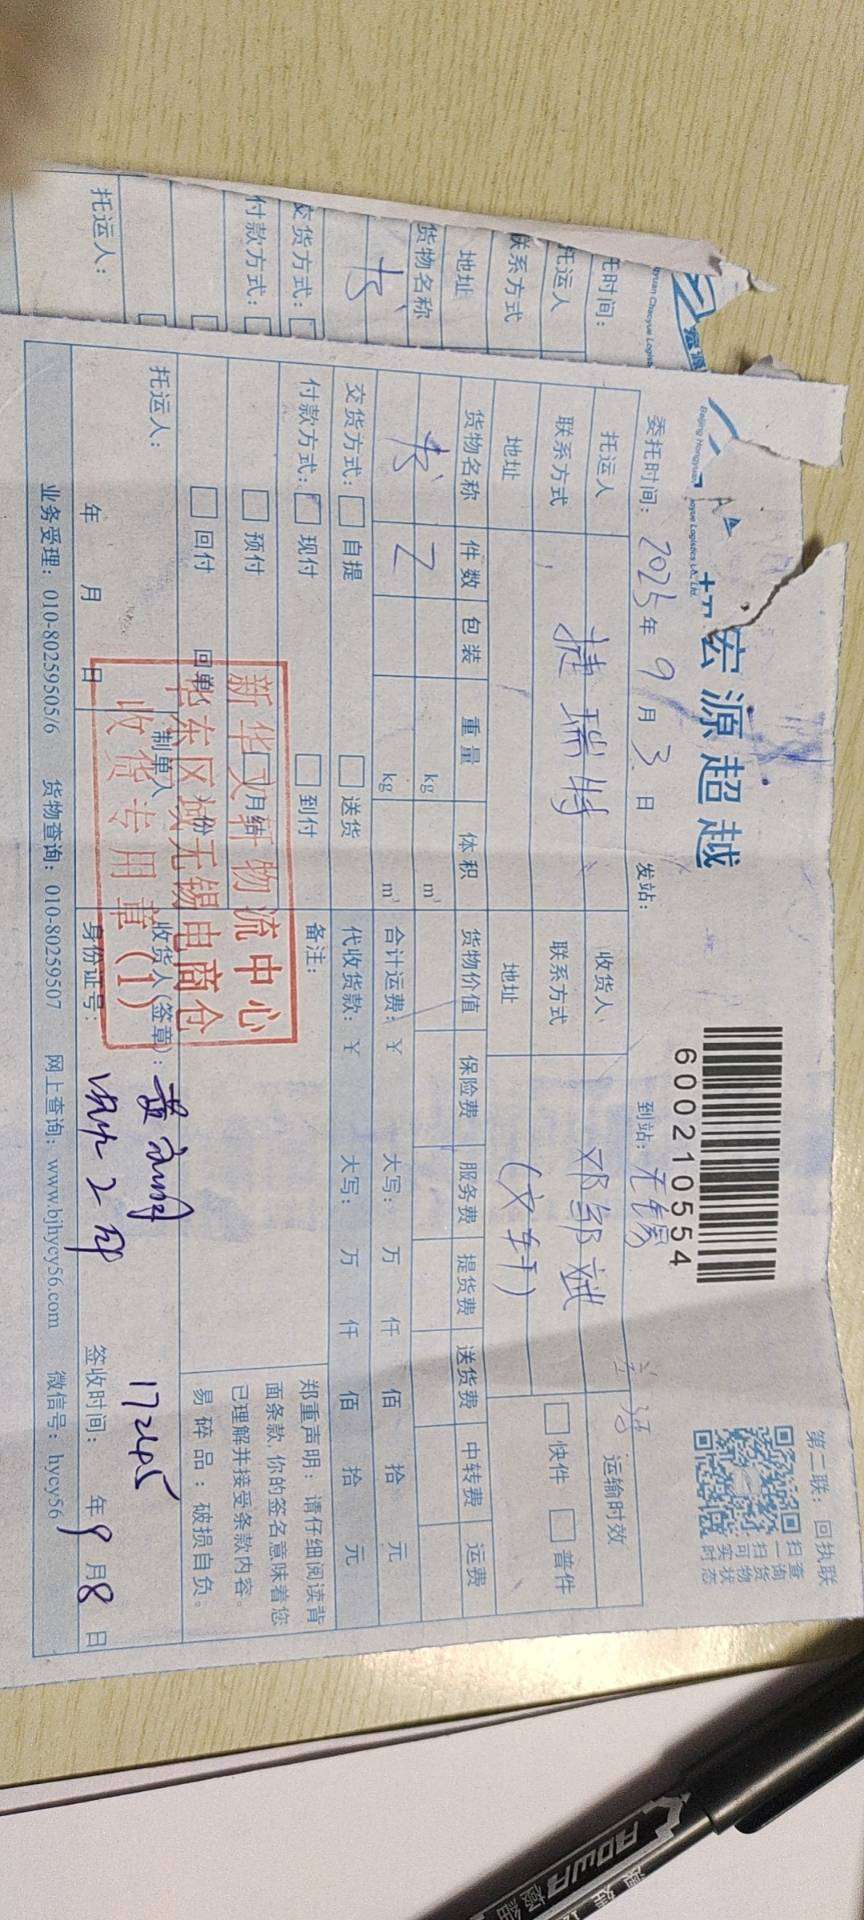 宏源超越
第二联：回执联
扫一扫可实时
查询货物状态
600210554
委托时间：2025年9月3日 发站： 到站：无锡
托运人 捷瑞特 收货人 邓邹斌 运输时效
联系方式 联系方式 快件 普件
地址 地址 (文轩)
货物名称 件数 包装 重量 体积 货物价值 保险费 服务费 提货费 送货费 中转费 运费
书 2 kg m³
kg m³ 合计运费：¥ 大写： 万 仟 佰 拾 元
交货方式： 自提 送货 代收货款：¥ 大写： 万 仟 佰 拾 元
付款方式： 现付 到付 备注：
预付 月结
回付 回单 份
郑重声明：请仔细阅读背
面条款，你的签名意味着您
已理解并接受条款内容。
易碎品：破损自负。
托运人： 制单人 收货人(签章)： 17245
年 月 日 身份证号： 签收时间： 年9月8日
业务受理：010-80259505/6 货物查询：010-80259507 网上查询：www.bjhycy56.com 微信号：hycy56
新华文轩物流中心
华东区域无锡电商仓
收货专用章(1)
托时间：
托运人
联系方式
地址
货物名称
书
交货方式：
付款方式：
托运人：